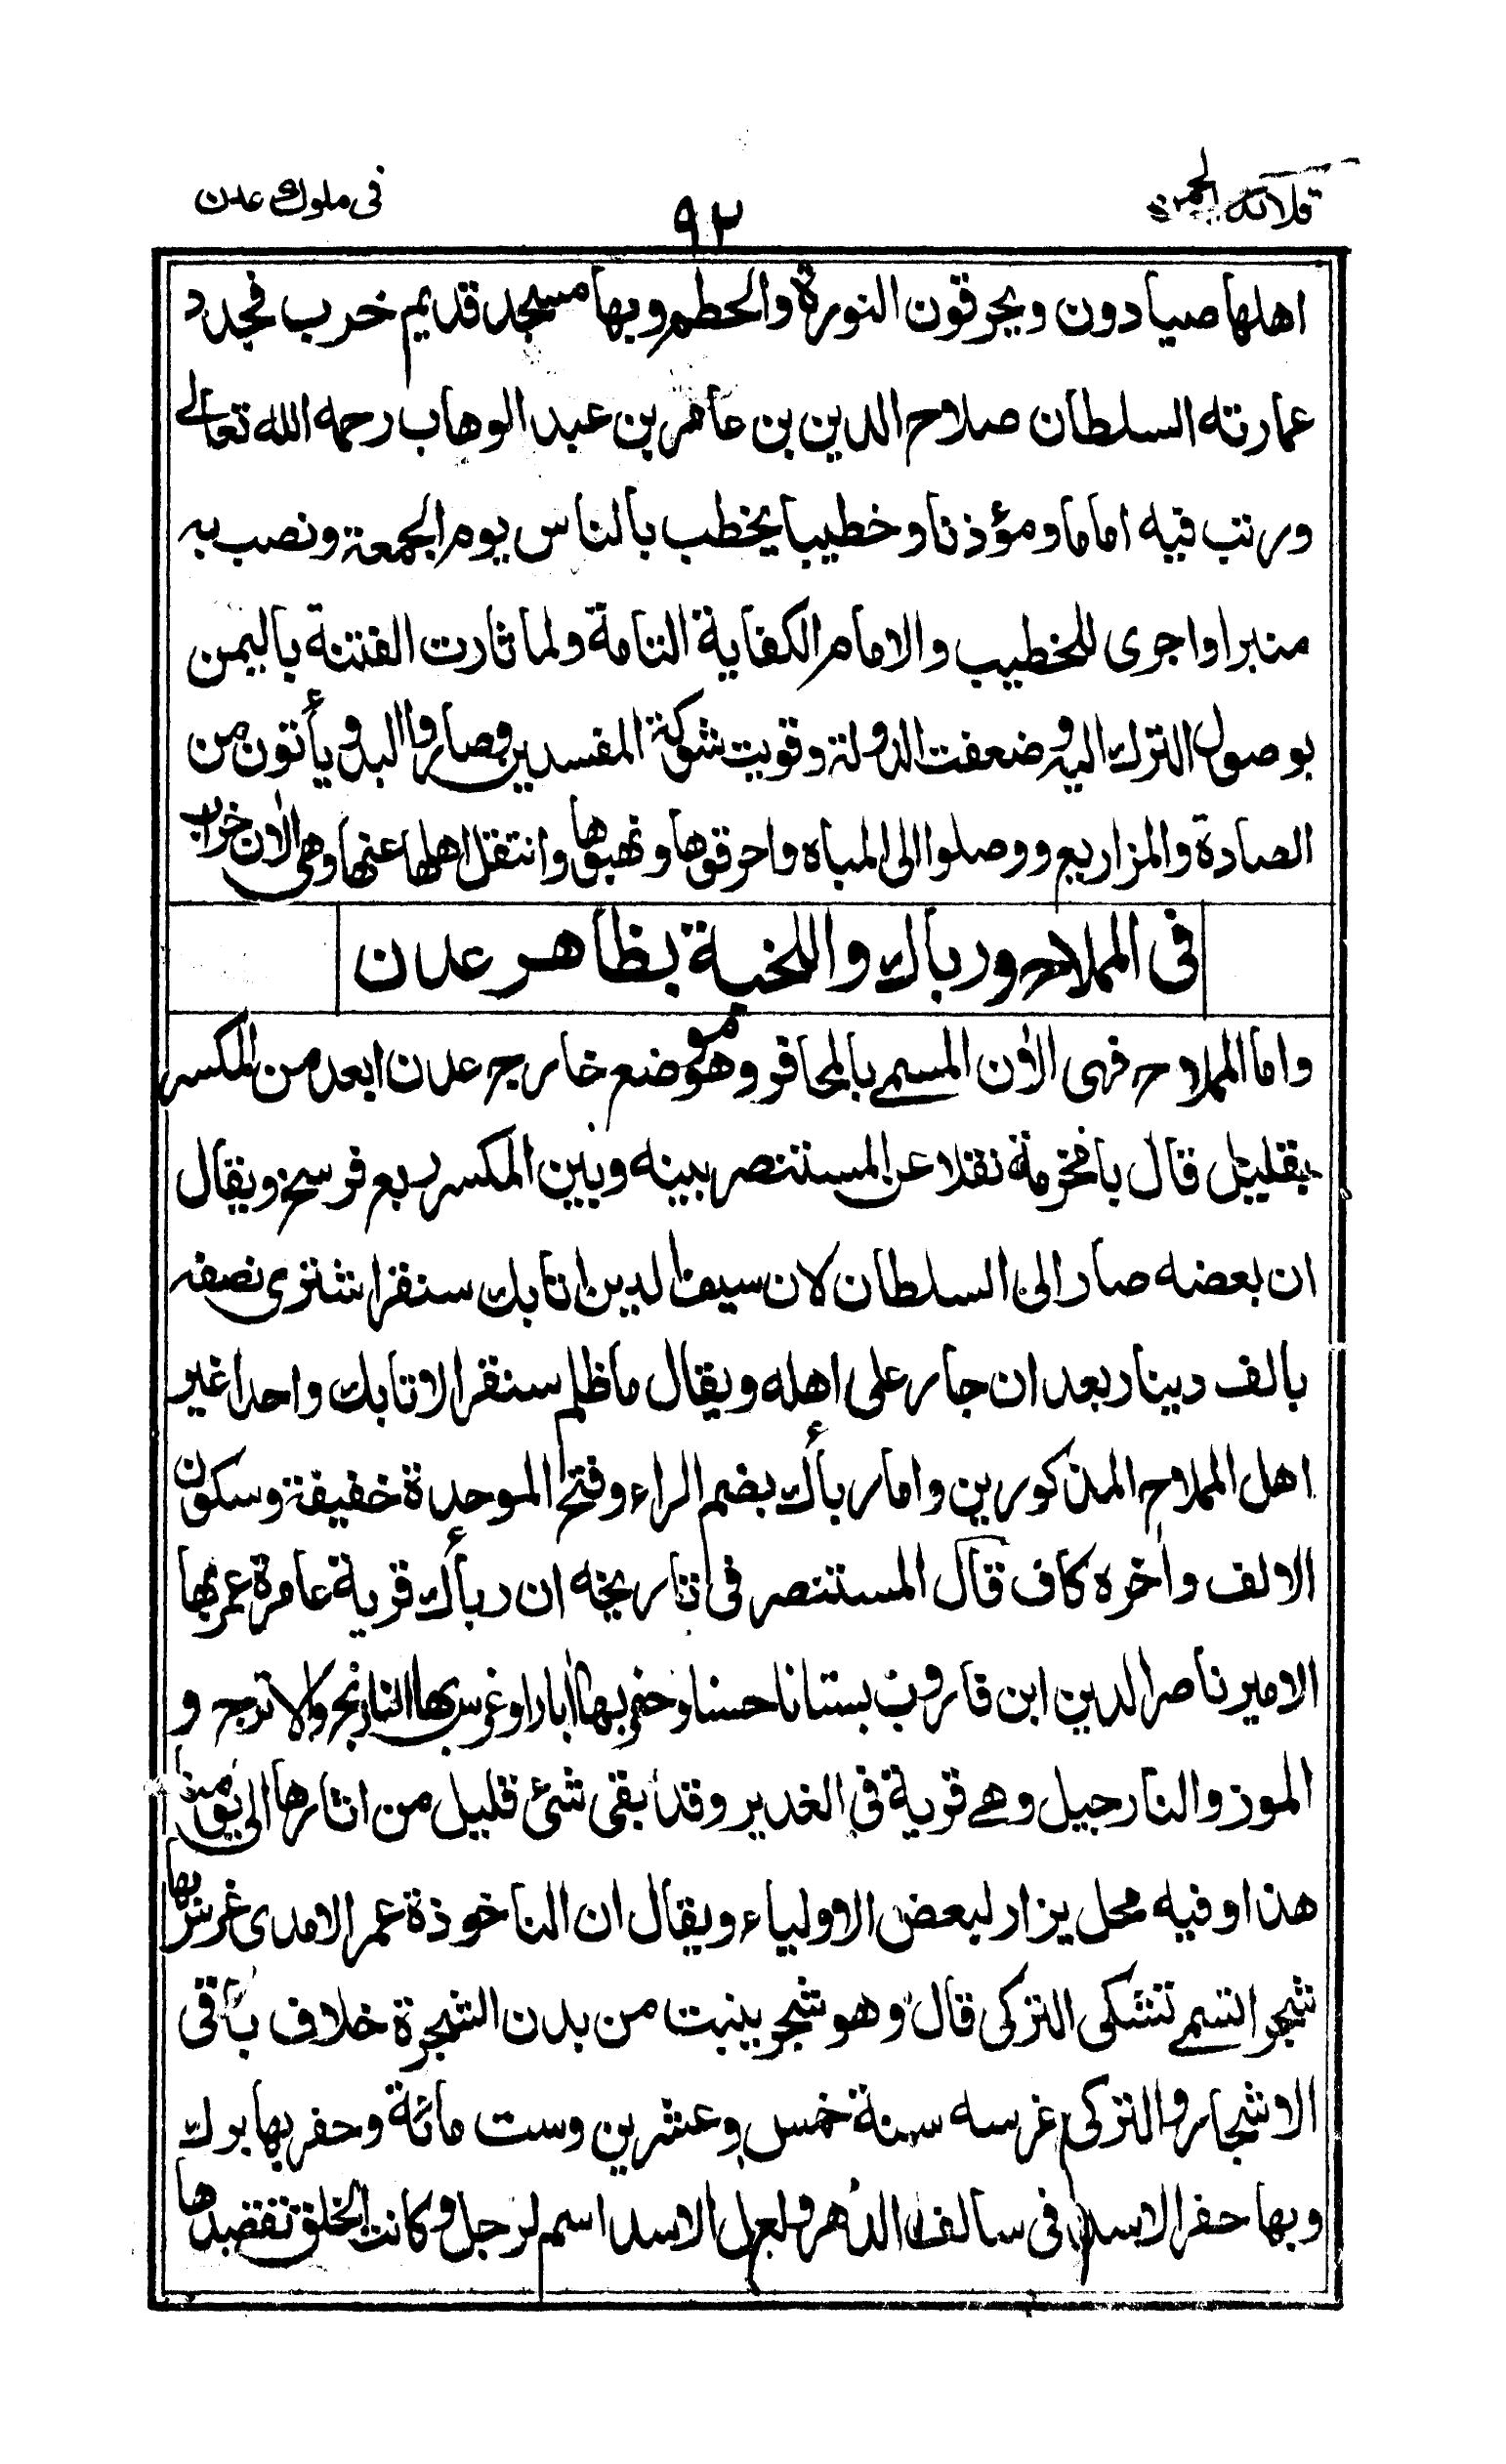 قلائد الجمن
٩٢
في ملوك عدن
اهلها صيادون ويحرقون النورة والحطم وبها مسجد قديم خرب فجدد
عمارته السلطان صلاح الدين بن عامر بن عبد الوهاب رحمه الله تعالى
ورتب فيه اماما ومؤذنا وخطيبا يخطب بالناس يوم الجمعة ونصب به
منبرا واجرى للخطيب والامام الكفاية التامة ولما ثارت الفتنة باليمن
بوصول الترك اليه وضعفت الدولة وقويت شوكة المفسدين وصاروا البدو يأتون من
الصادة والمزاريع ووصلوا الى المباه واحرقوها ونهبوها وانتقل اهلها عنها وهي الآن خراب
في الملاح ورباك واللخبة بظاهر عدن
واما الملاح فهى الآن المسمى بالمحافر وهو موضع خارج عدن ابعد من المكسر
بقليل قال بامخرمة نقلا عن المستنصر بينه وبين المكسر ربع فرسخ ويقال
ان بعضه صار الى السلطان لان سيف الدين اتابك سنقر اشترى نصفه
بالف دينار بعد ان جار على اهله ويقال ما ظلم سنقر الاتابك واحدا غير
اهل الملاح المذكورين واما ربأك بضم الراء وفتح الموحدة خفيفة وسكون
الالف وآخره كاف قال المستنصر في تاريخه ان ربأك قرية عامرة عمر بها
الامير ناصر الدين ابن فاروت بستانا حسنا وحفر بها آبارا وغرس بها النارنج والاترج و
الموز والنارجيل وهي قرية في الغدير وقد بقى شئ قليل من اثارها الى يومنا
هذا وفيه محل يزار لبعض الاولياء ويقال ان الناخوذة عمر الامدى غرس بها
شجرا تسمى تشكى التركى قال وهو شجر ينبت من بدن الشجرة خلاف باقى
الاشجار والتركى غرسه سنة خمس وعشرين وست مائة وحفر بها برك
وبها حفر الاسد في سالف الدهر ولعل الاسد اسم لرجل وكانت الخلق تقصدها